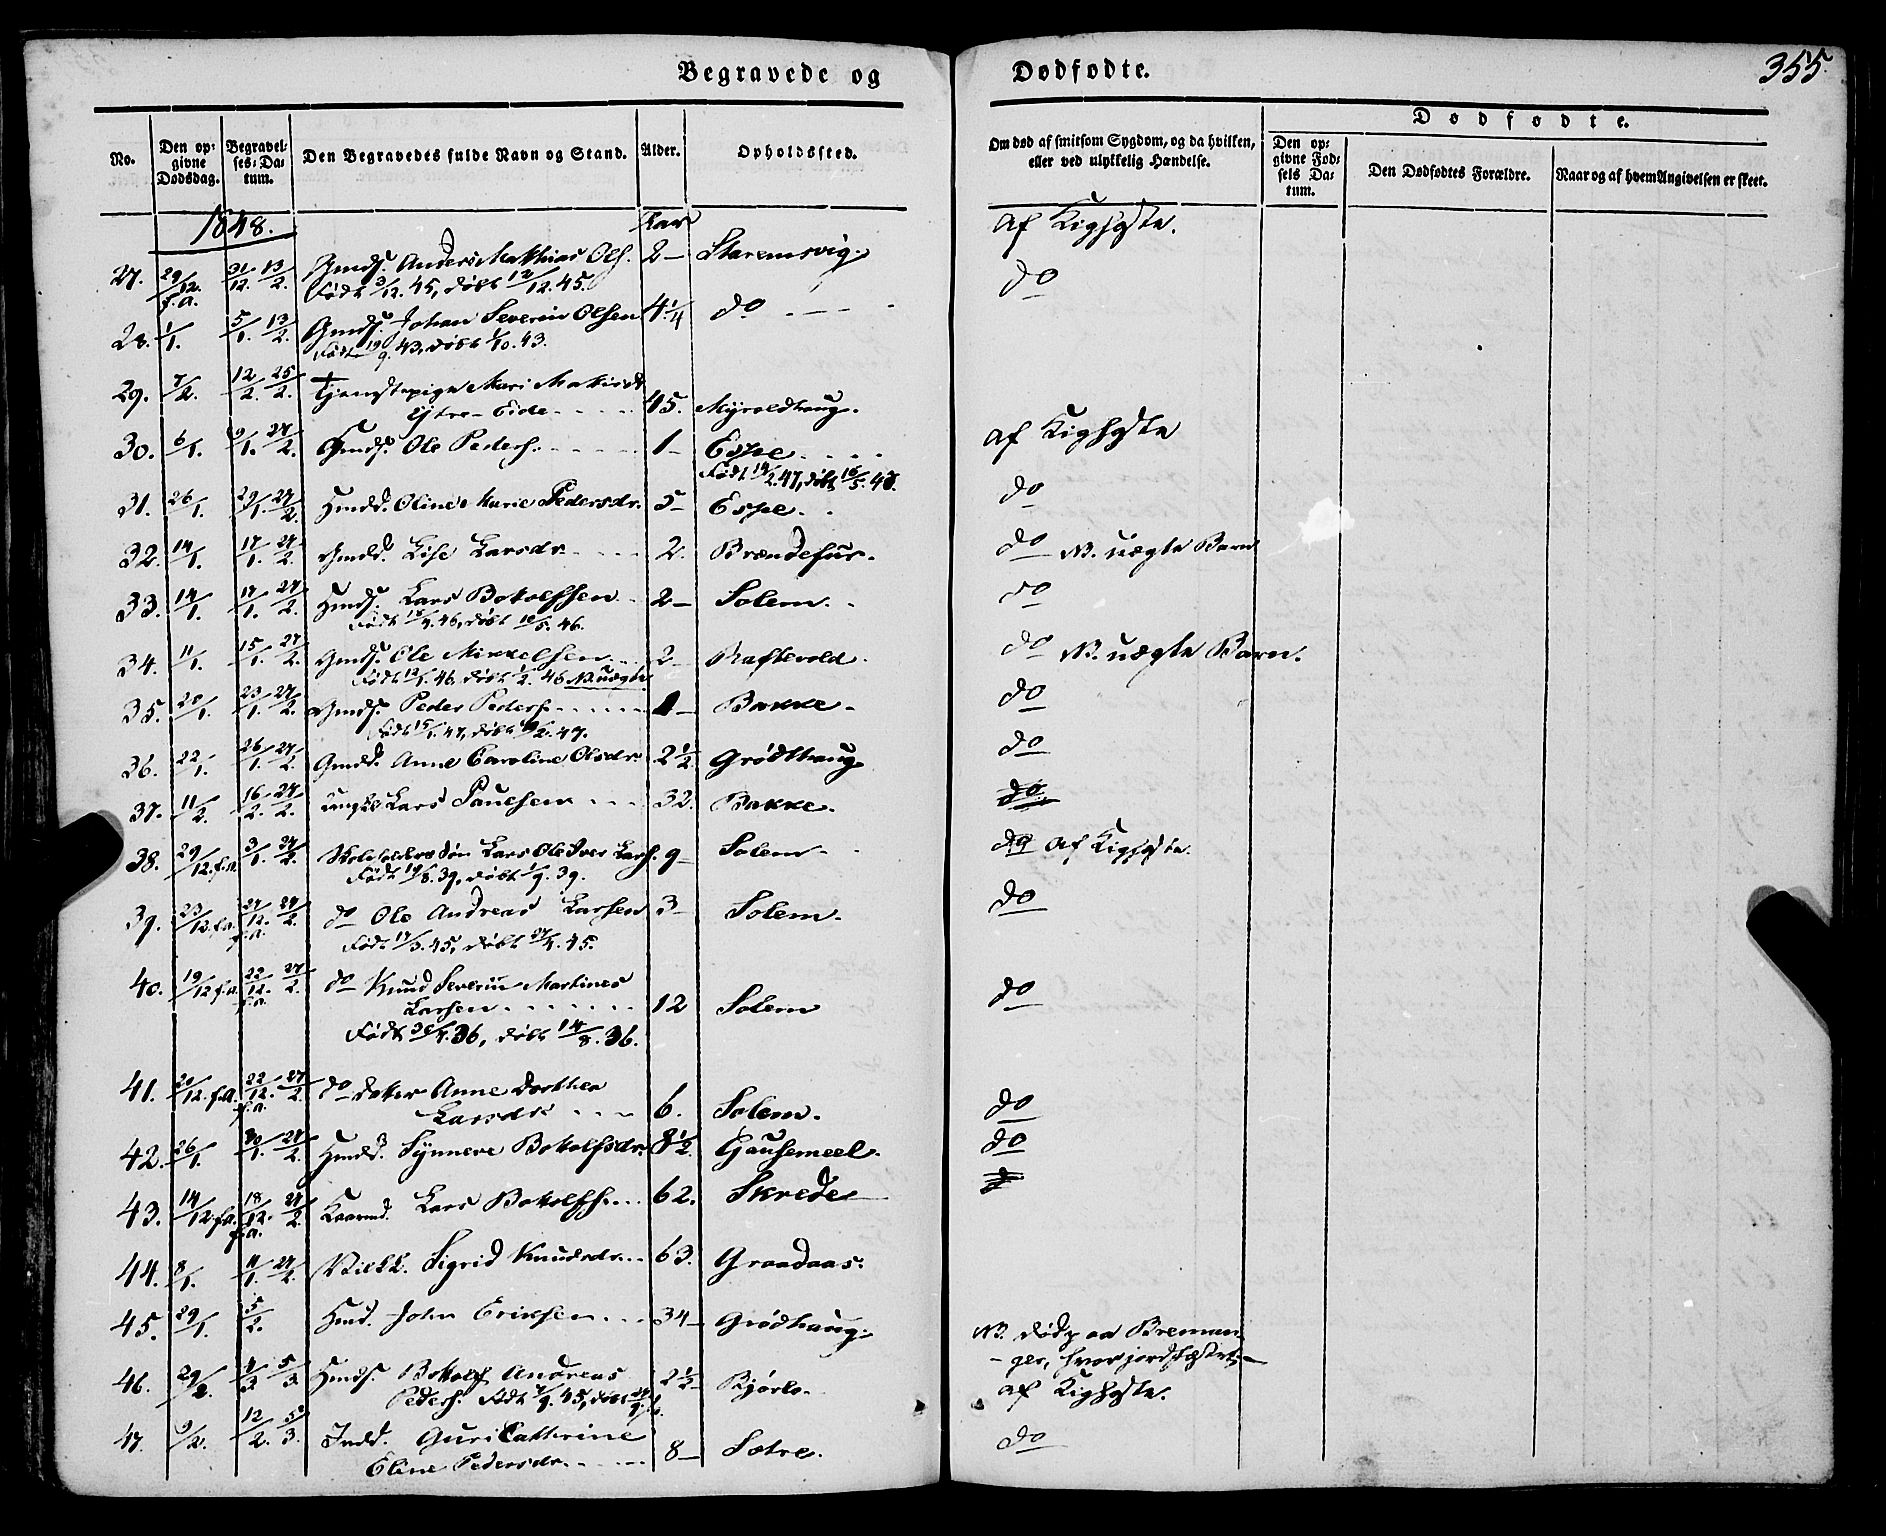 355.
Begravede og Dødfødte.
No.
Den opgivne Dødsdag.
Begravelses-Datum.
Den Begravedes fulde Navn og Stand.
Alder.
Opholdssted.
Om død af smitsom Sygdom, og da hvilken, eller ved ulykkelig Hændelse.
Dødfødte.
Den opgivne Fødsels Datum.
Den Dødfødtes Forældre.
Naar og af hvem Angivelsen er skeet.
1848. Aar
27. 29/12. f.a. 31/12. 13/2. Gmds. Anders Mathias Ols. 2 – Staremsvig. af Kighoste.
Født 3/12. 45, døbt 12/12. 45. do
28. 1/1. 5/1. 13/2. Gmds. Johan Severin Olsen 4 1/4 do
Født 19/9. 43, døbt 1/10. 43.
29. 7/2. 12/2. 25/2. Tjenestepige Mari
Ytre-Eide 45. Myroldhaug.
30. 6/1. 9/1. 27/2. Gmds. Ole Peders. 1 – Espe. af Kighoste
Født 14/2. 47, døbt
31. 26/1. 29/1. 27/2. Hmdd. Oline Marie Pedersdr. 5 – Espe. do
32. 14/1. 17/1. 27/2. Gmdd. Lise Larsdr 2. Brændefur. do NB. uægte Barn
33. 14/1. 17/1. 27/2. Hmds. Lars Botolfsen 2 – Solem. do
Født 46, døbt 10/5. 46.
34. 11/1. 15/1. 27/2. Gmds. Ole Mikkelsen 2 – Raftevold. do NB. uægte Barn.
46, døbt 1/2. 46 NB. uægte
35. 20/1. 23/1. 27/2. Gmds. Peder Peders. 1 – Bakke. do
Født 47, døbt 2. 47.
36. 22/1. 26/1. 27/2. Gmdd. Anne Caroline Olsdr 2 1/2 Grødthaug do
37. 11/2. 16/2. 27/2. Ungkl Lars Paulsen 32. Bakke. do
38. 29/12. f.a. 3/1. 27/2. Skoleholders Søn Lars Ole Iver Lars. 9 – Solem. do af Kighoste.
Født 19/8. 39, døbt 1/9. 39.
39. 23/12. f.a. 27/12. f.a. 27/2. do Ole Andreas Larsen 3 – Solem. do
Født 17/3. 45, døbt 27/4. 45.
40. 19/12. f.a. 22/12. f.a. 27/2. do Knud Severin Martines
Larsen 12 Solem do
Født 36, døbt 14/8. 36.
41. 20/12. f.a. 22/12. f.a. 27/2. do Doter Anne Dorthea
Larsdr 6. Solem. do
42. 26/1. 30/1. 27/2. Hmdd. Synneve Botolfsdr. 8 1/2. Gausemeel. do
43. 14/12. f.a. 18/12. f.a. 27/2. Kaarmd. Lars Botolfs. 62. Skrede
44. 8/1. 11/1. 27/2. Sigrid Knudsdr. 63. Graadaas.
45. 29/1. 5/2. Hmd. John Eriksen 34 – Grødthaug. NB. Død paa Breman-
ger, hvor jordfæstet.
46. 29/2. 4/3 5/3. Hmds. Botolf Andreas 2 1/2 – Bjørlo. af Kighoste.
Peders. Født 9. 45, døbt
47. 9/2. 12/2. 5/3. Indd. Guri Cathrine do
Eline Pedersdr. 8 – Sætre.